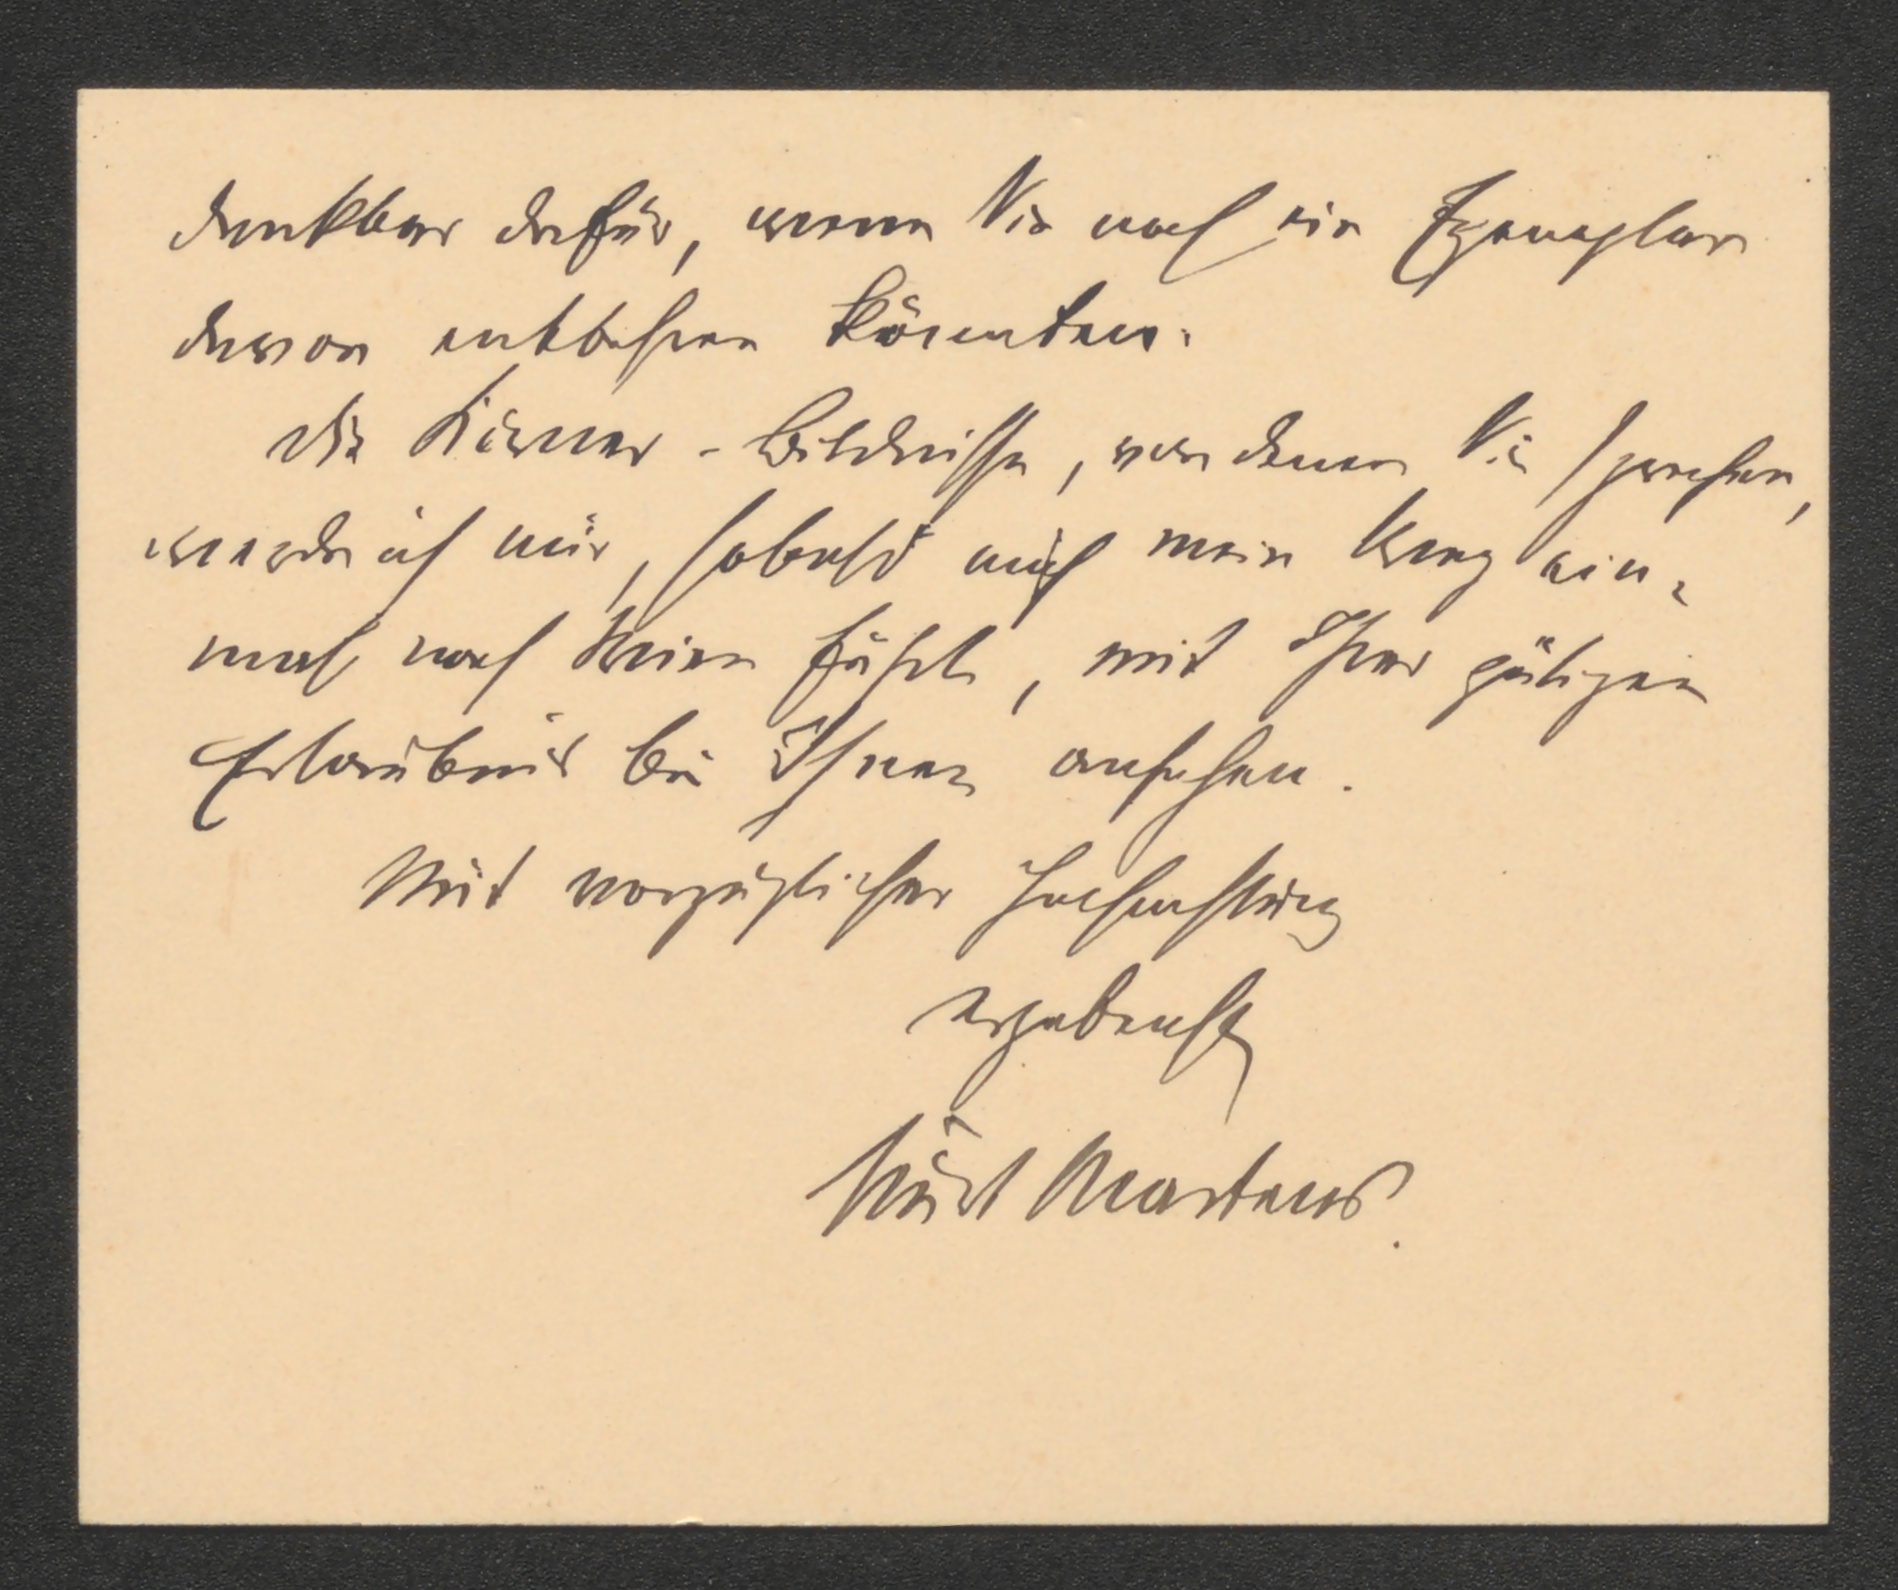 dankbar dafür, wenn Sie noch ein Exemplar
davon entbehren könnten.
Die Körner-Bildnisse, von denen Sie sprechen,
werde ich mir, sobald mich mein Weg ein-
mal nach Wien führt, mit Ihrer gütigen
Erlaubnis bei Ihnen ansehen.
Mit vorzüglicher Hochachtung
ergebenst
Kurt Martens.